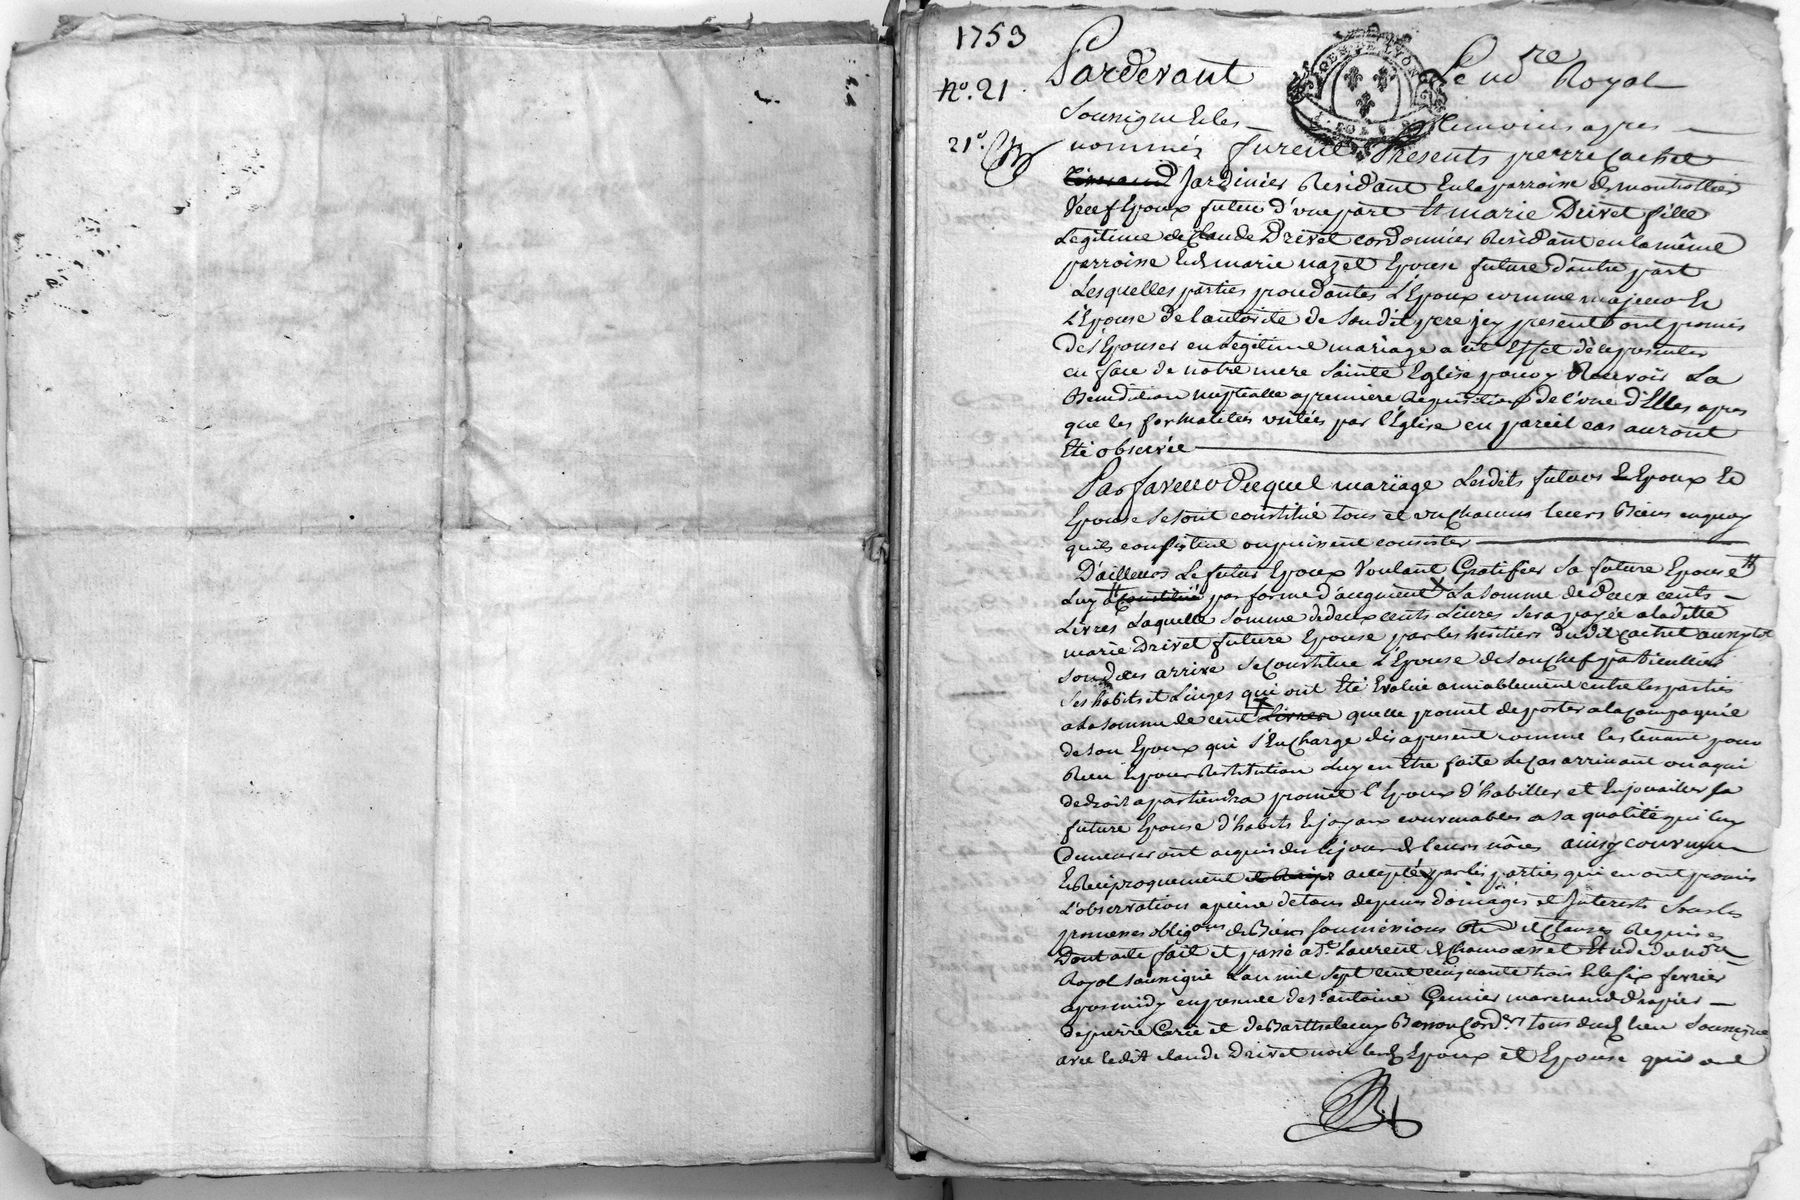 1753
N°. 21
21e
GEN. DE LYON
Pardevant Le nd re Royal
Soussigné Et les Temoins apres
nommés furent Presents pierre Cachet
Jardinier Residant En la parroisse de montrottier
Veuf Epoux futur d'une part Et marie Drivet fille
Legitime de Claude Drivet cordonnier Residant en la même
parroisse Et de marie nazet Epouse future d'autre part
Lesquelles parties procedantes L'Epoux comme majeur Et
L'Epouse de l'autorité de Son dit pere icy present ont promis
de s'Epouser en Legitime mariage a cet Effet de se presenter
en face de notre mere Sainte Eglise pour y Recevoir La
Benediction nuptialle a premiere Requisition de l'une d'Elles apres
que les formalités usitées par l'Eglise en pareil cas auront
Eté observée
Par faveur Duquel mariage Lesdits futurs Epoux Et
Epouse Se sont constitué tous et un Chacuns leurs Biens en quoy
qu'ils consistent ou puissent consister
D'ailleurs Le futur Epoux Voulant Gratifier Sa future Epouse
Luy a constitué par forme d'augment La Somme de Deux cents
Livres Laquelle Somme de deux cents Livres Sera payée a ladite
marie Drivet future Epouse par les heritiers Dudit Cachet aussytot
Son deces arrivé Se Constitue L'Epouse de Son Chef particullier
Ses habits et Linges qui ont Eté Evalué amiablement entre les parties
a La Somme de cent Livres quelle promet de porter a la Compagnie
de Son Epoux qui S'En Charge dès apresent comme les tenant pour
Reçu Et pour Restitution Luy en Etre faite Le Cas arrivant ou a qui
de droit apartiendra promet l'Epoux d'habiller et Enjoailler Sa
future Epouse d'habits Et joyaux convenables a Sa qualité qui luy
demeureront acquis dès le jour de leurs nôces ainsy convenu
Et Reciproquement accepté par les parties qui en ont promis
L'observation a peine de tous depens domages et Interests Sous les
promesses obligons de Biens Soumissions et Clauses Requises
Dont acte fait et passé a St. Laurent de Chamousset Etude du nd re
Royal Soussigné L'an mil Sept cent cinquante trois Et le Six fevrier
apres midy en presence de Sr. antoine Grenier marchand Drapier
de pierre Carie et de Barthelemy Basson Cordr. tous dud lieu Soussigné
avec ledit claude Drivet non lesd Epoux et Epouse qui ont